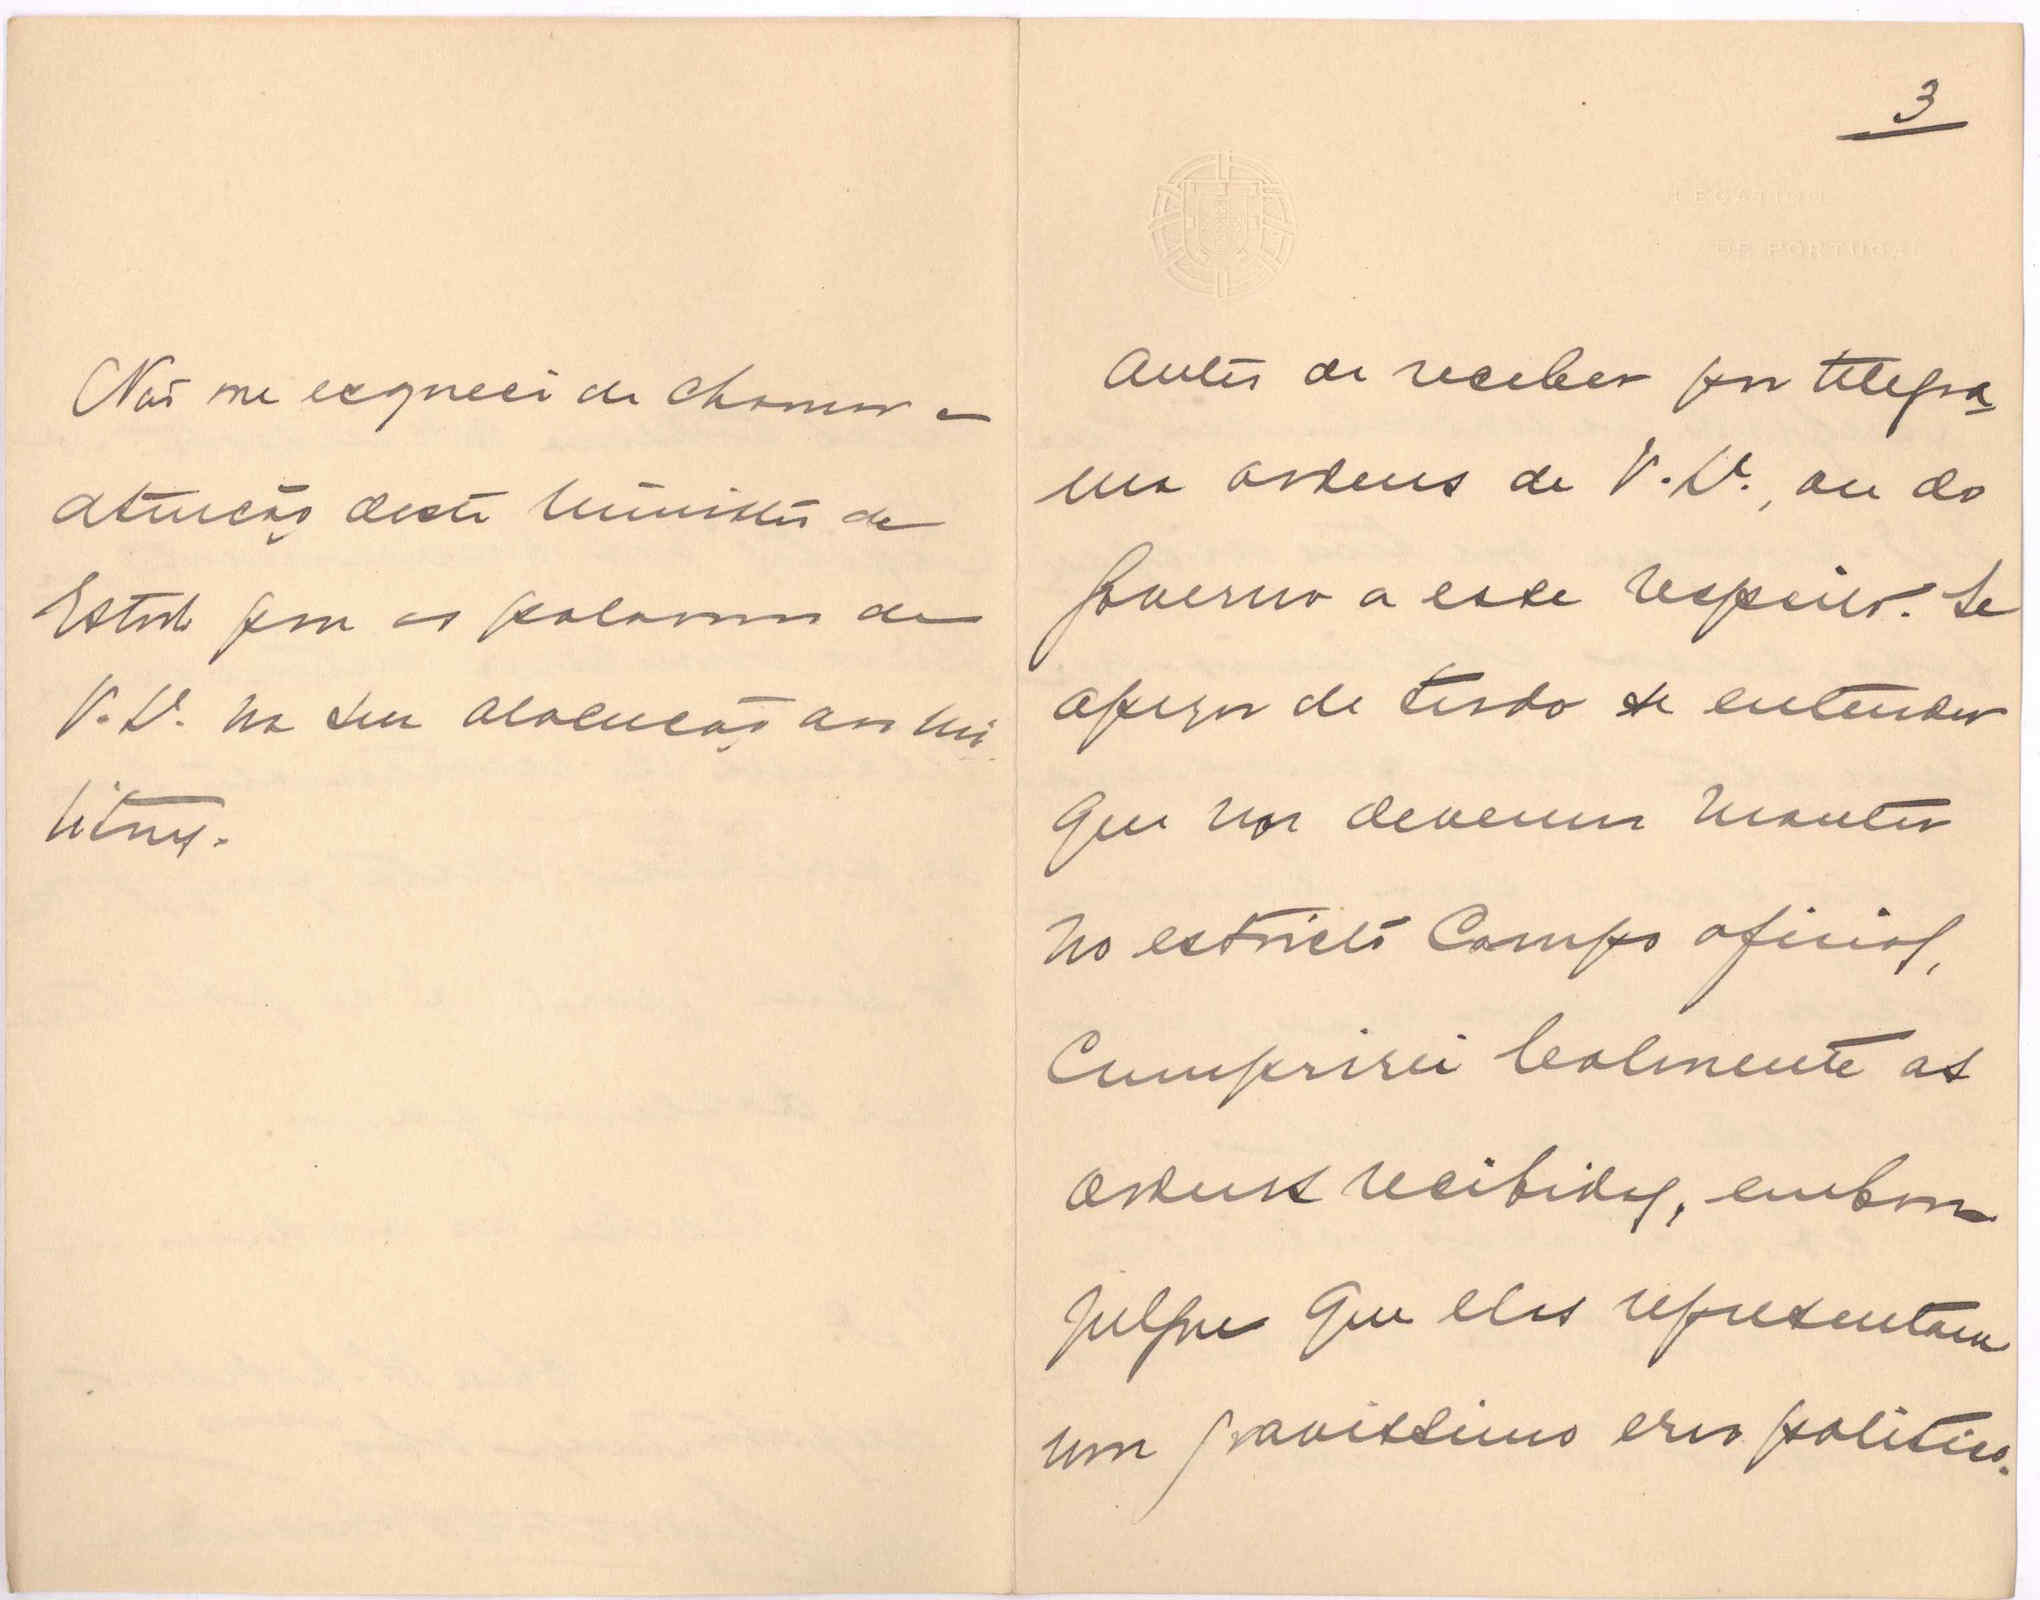 Não me esqueci de chamar a
atenção deste Ministro de
Estado para as palavras de
V. Ex.ª na sua alocução aos mi-
litares.
3
LEGATION
DE PORTUGAL
Antes de receber por telegra-
ma ordens de V. Ex.ª, ou do
Governo a esse respeito. Se
apezar de tudo se entender
que nos devemos manter
no estricto campo oficial,
cumprirei lealmente as
ordens recibidas, embora
julgue que elas representam
um gravissimo erro politico.